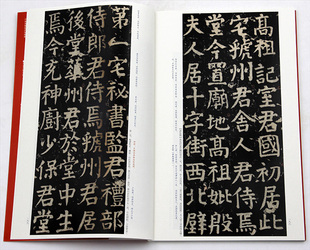 高祖記室君國初居此
宅虢州君舍人君居焉
堂今置廟地高祖妣殷
夫人居十字街西北壁
第一宅祕書監君禮部
侍郎君侍焉虢州君居
後堂華州君於堂中生
焉今充神廚少保君堂